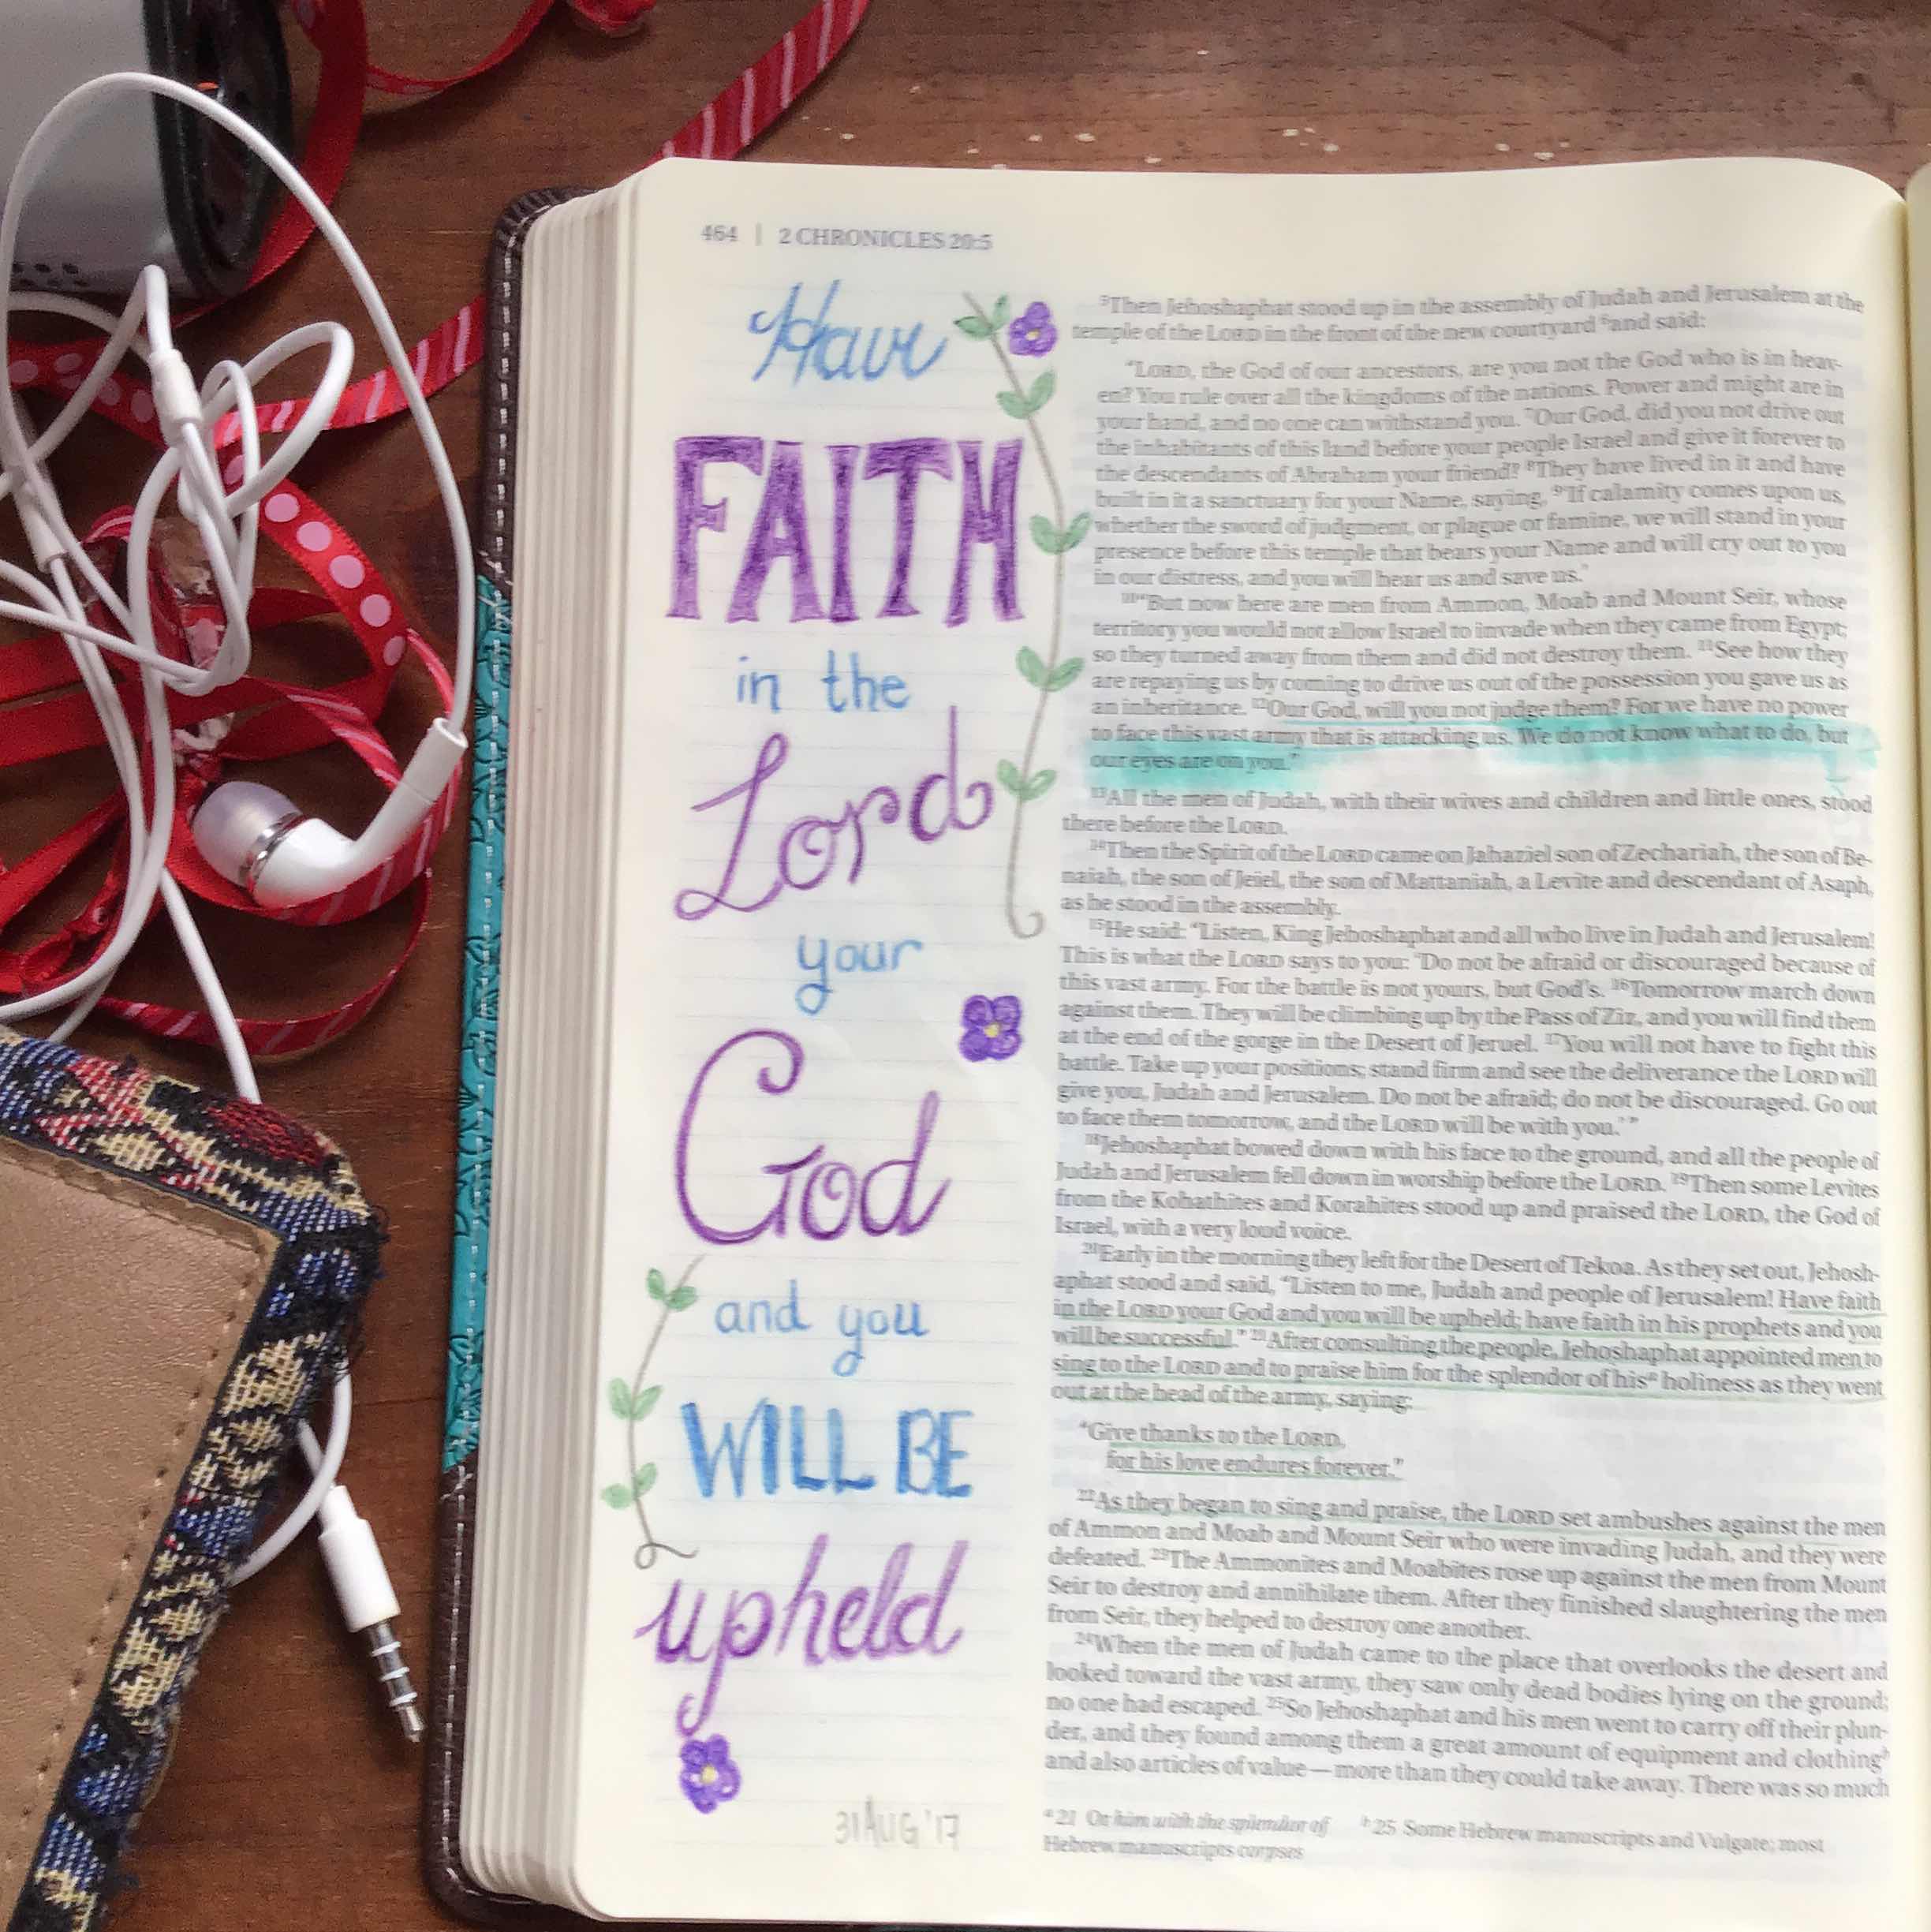 464 | 2 CHRONICLES 20:5
Have
FAITH
in the
Lord
your
God
and you
WILL BE
upheld
31 AUG '17
⁵Then Jehoshaphat stood up in the assembly of Judah and Jerusalem at the
temple of the LORD in the front of the new courtyard ⁶and said:
“LORD, the God of our ancestors, are you not the God who is in heav-
en? You rule over all the kingdoms of the nations. Power and might are in
your hand, and no one can withstand you. ⁷Our God, did you not drive out
the inhabitants of this land before your people Israel and give it forever to
the descendants of Abraham your friend? ⁸They have lived in it and have
built in it a sanctuary for your Name, saying, ⁹‘If calamity comes upon us,
whether the sword of judgment, or plague or famine, we will stand in your
presence before this temple that bears your Name and will cry out to you
in our distress, and you will hear us and save us.’
¹⁰“But now here are men from Ammon, Moab and Mount Seir, whose
territory you would not allow Israel to invade when they came from Egypt;
so they turned away from them and did not destroy them. ¹¹See how they
are repaying us by coming to drive us out of the possession you gave us as
an inheritance. ¹²Our God, will you not judge them? For we have no power
to face this vast army that is attacking us. We do not know what to do, but
our eyes are on you.”
¹³All the men of Judah, with their wives and children and little ones, stood
there before the LORD.
¹⁴Then the Spirit of the LORD came on Jahaziel son of Zechariah, the son of Be-
naiah, the son of Jeiel, the son of Mattaniah, a Levite and descendant of Asaph,
as he stood in the assembly.
¹⁵He said: “Listen, King Jehoshaphat and all who live in Judah and Jerusalem!
This is what the LORD says to you: ‘Do not be afraid or discouraged because of
this vast army. For the battle is not yours, but God’s. ¹⁶Tomorrow march down
against them. They will be climbing up by the Pass of Ziz, and you will find them
at the end of the gorge in the Desert of Jeruel. ¹⁷You will not have to fight this
battle. Take up your positions; stand firm and see the deliverance the LORD will
give you, Judah and Jerusalem. Do not be afraid; do not be discouraged. Go out
to face them tomorrow, and the LORD will be with you.’ ”
¹⁸Jehoshaphat bowed down with his face to the ground, and all the people of
Judah and Jerusalem fell down in worship before the LORD. ¹⁹Then some Levites
from the Kohathites and Korahites stood up and praised the LORD, the God of
Israel, with a very loud voice.
²⁰Early in the morning they left for the Desert of Tekoa. As they set out, Jehosh-
aphat stood and said, “Listen to me, Judah and people of Jerusalem! Have faith
in the LORD your God and you will be upheld; have faith in his prophets and you
will be successful.” ²¹After consulting the people, Jehoshaphat appointed men to
sing to the LORD and to praise him for the splendor of hisᵃ holiness as they went
out at the head of the army, saying:
“Give thanks to the LORD,
for his love endures forever.”
²²As they began to sing and praise, the LORD set ambushes against the men
of Ammon and Moab and Mount Seir who were invading Judah, and they were
defeated. ²³The Ammonites and Moabites rose up against the men from Mount
Seir to destroy and annihilate them. After they finished slaughtering the men
from Seir, they helped to destroy one another.
²⁴When the men of Judah came to the place that overlooks the desert and
looked toward the vast army, they saw only dead bodies lying on the ground;
no one had escaped. ²⁵So Jehoshaphat and his men went to carry off their plun-
der, and they found among them a great amount of equipment and clothingᵇ
and also articles of value — more than they could take away. There was so much
ᵃ 21 Or him with the splendor of ᵇ 25 Some Hebrew manuscripts and Vulgate; most
Hebrew manuscripts corpses